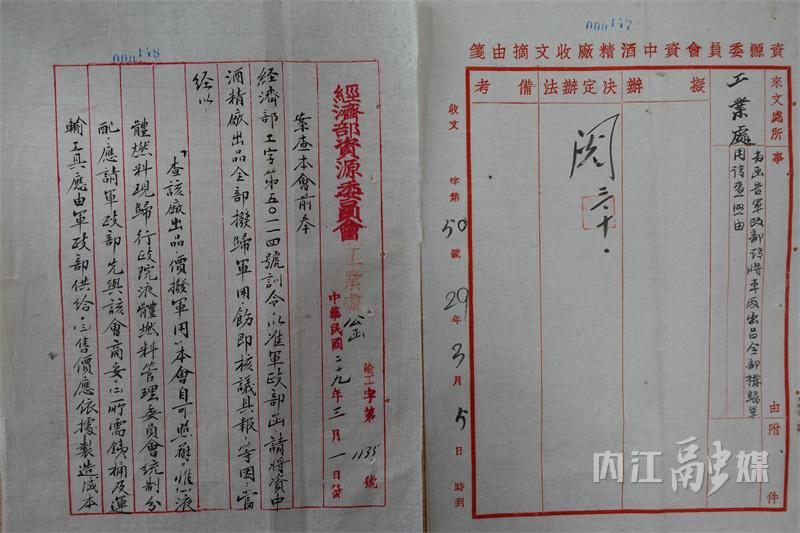 000147
資源委員會資中酒精廠收文摘由箋
來文處所
工業處
事
為函告軍政部請將本廠出品全部撥歸軍
用請查照由
由
附件
擬辦
決定辦法
備考
閱
三、十、
收文 字第50號 29年3月5日 時到
000148
經濟部資源委員會工業處公函
渝工字第1135號
中華民國二十九年三月一日發
案查本會前奉
經濟部工字第五〇一一四號訓令，以准軍政部函請將資中
酒精廠出品全部撥歸軍用，飭即核議具報，等因，當
經以：
「查該廠出品價撥軍用，本會自可照辦，惟㈠液
體燃料現歸行政院液體燃料管理委員會統制分
配，應請軍政部先與該會商妥，㈡所需鉄桶及運
輸工具，應由軍政部供給，㈢售價應依據製造成本
内江融媒